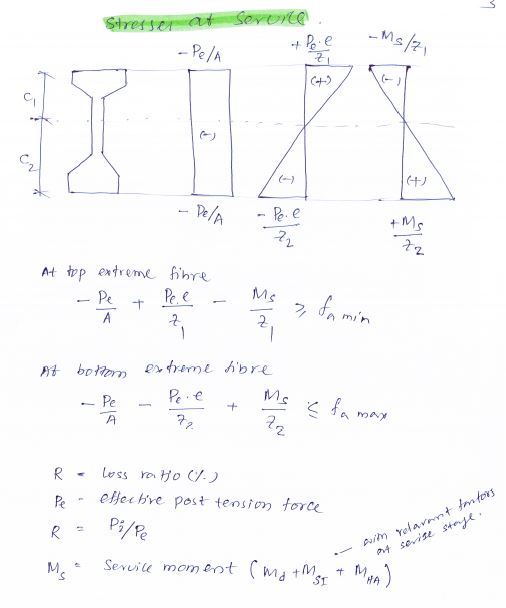 3
Stresses at Service.
- Pe/A
+ Pe.e/Z1
- Ms/Z1
C1
C2
(-)
(+)
(-)
(-)
(+)
- Pe/A
- Pe.e/Z2
+Ms/Z2
At top extreme fibre
- Pe/A + Pe.e/Z1 - Ms/Z1 ≥ fa min
At bottom extreme fibre
- Pe/A - Pe.e/Z2 + Ms/Z2 ≤ fa max
R = Loss ratio (%)
Pe - effective post tension force
R = Pi/Pe
Ms = Service moment (Md + MSI + MHA)
— with relavant factors
at servise stage.